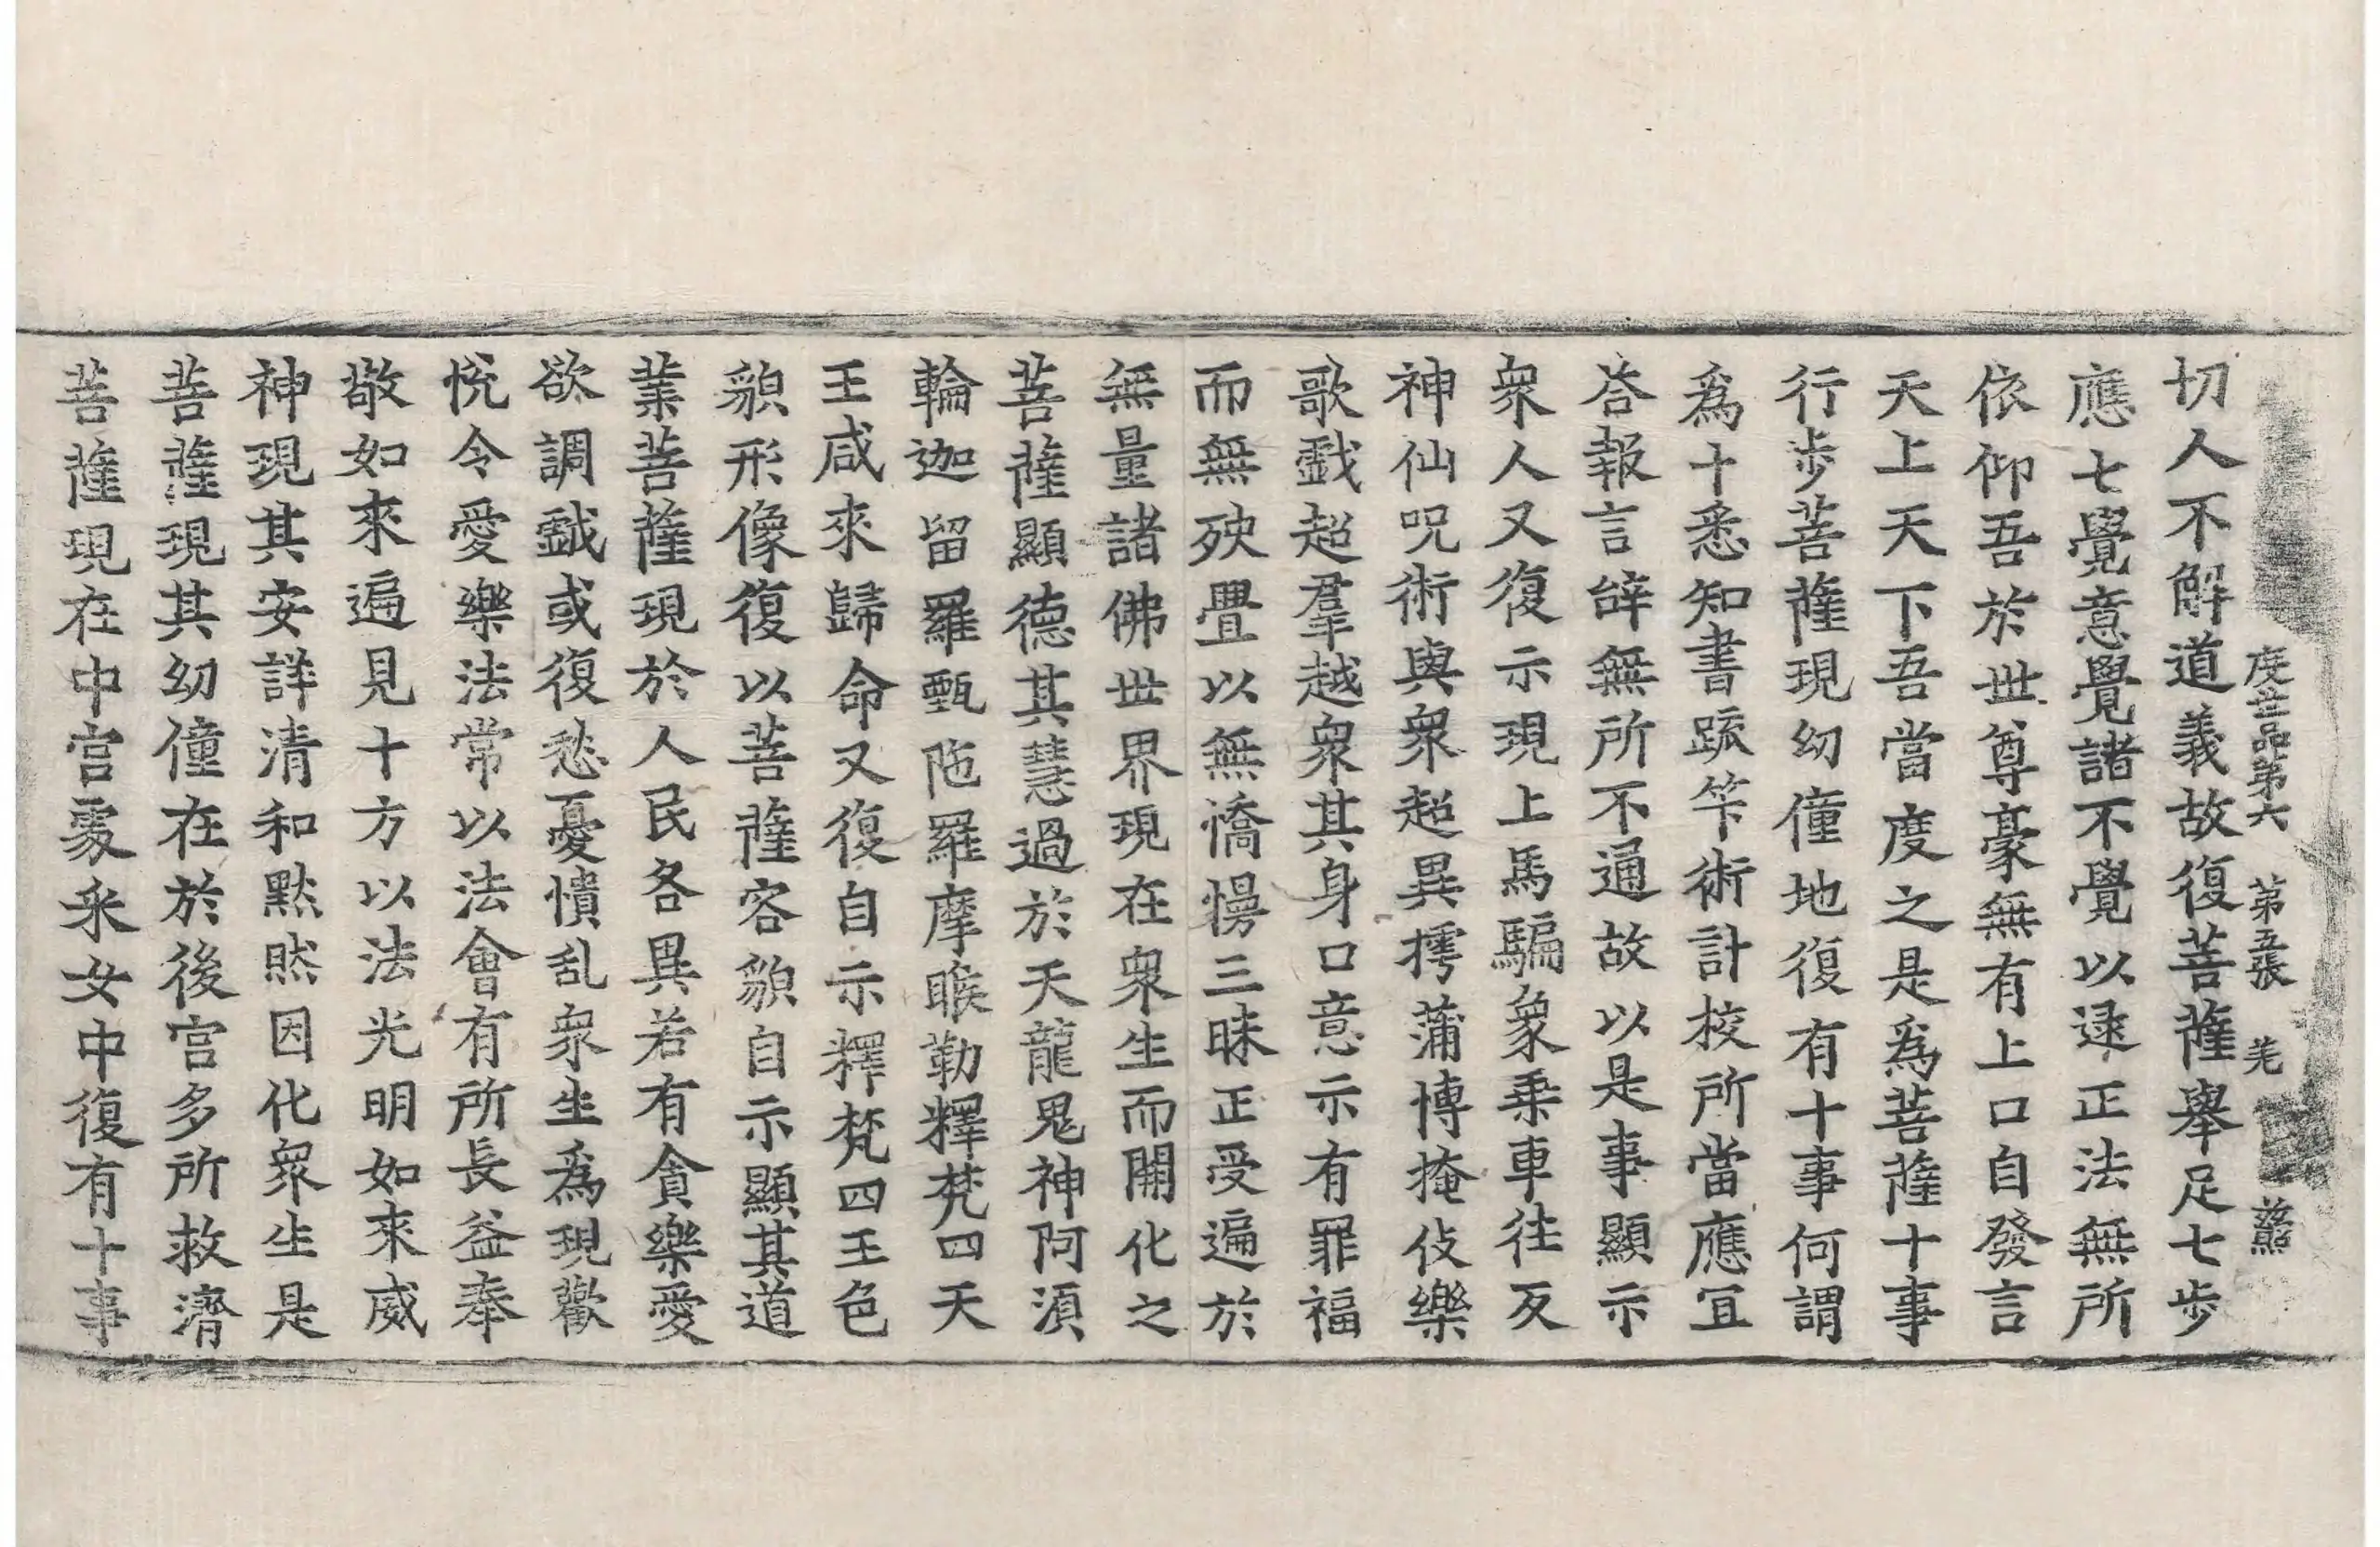 度世品第六 第五張 羌
切人不解道義故復菩薩舉足七步
應七覺意覺諸不覺以逮正法無所
依仰吾於世尊豪無有上口自發言
天上天下吾當度之是爲菩薩十事
行步菩薩現幼僮地復有十事何謂
爲十悉知書䟽竿術計校所當應冝
荅報言辝無所不通故以是事顯示
衆人又復示現上馬騙象乗車往反
神仙呪術與衆超異摴蒲博掩伎樂
歌戲超羣越衆其身口意示有罪福
而無殃舋以無憍慢三昧正受遍於
無量諸佛世界現在衆生而開化之
菩薩顯德其慧過於天龍鬼神阿湏
輪迦留羅甄陁羅摩睺勒釋梵四天
王咸來歸命又復自示釋梵四王色
貌形像復以菩薩容貌自示顯其道
業菩薩現於人民各異若有貪樂愛
欲調戲或復愁憂憒乱衆生爲現歡
悅令愛樂法常以法會有所長益奉
敬如來遍見十方以法光明如來威
神現其安詳清和黙然因化衆生是
菩薩現其幼僮在於後宮多所救濟
菩薩現在中宮䆠婇女中復有十事